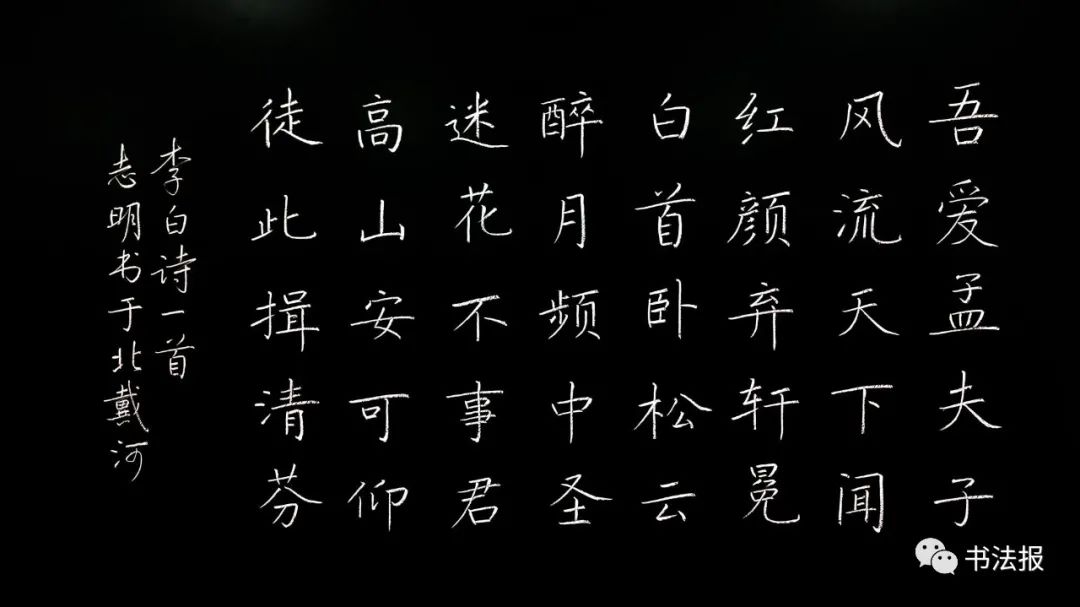 吾爱孟夫子
风流天下闻
红颜弃轩冕
白首卧松云
醉月频中圣
迷花不事君
高山安可仰
徒此揖清芬
李白诗一首
志明书于北戴河
书法报